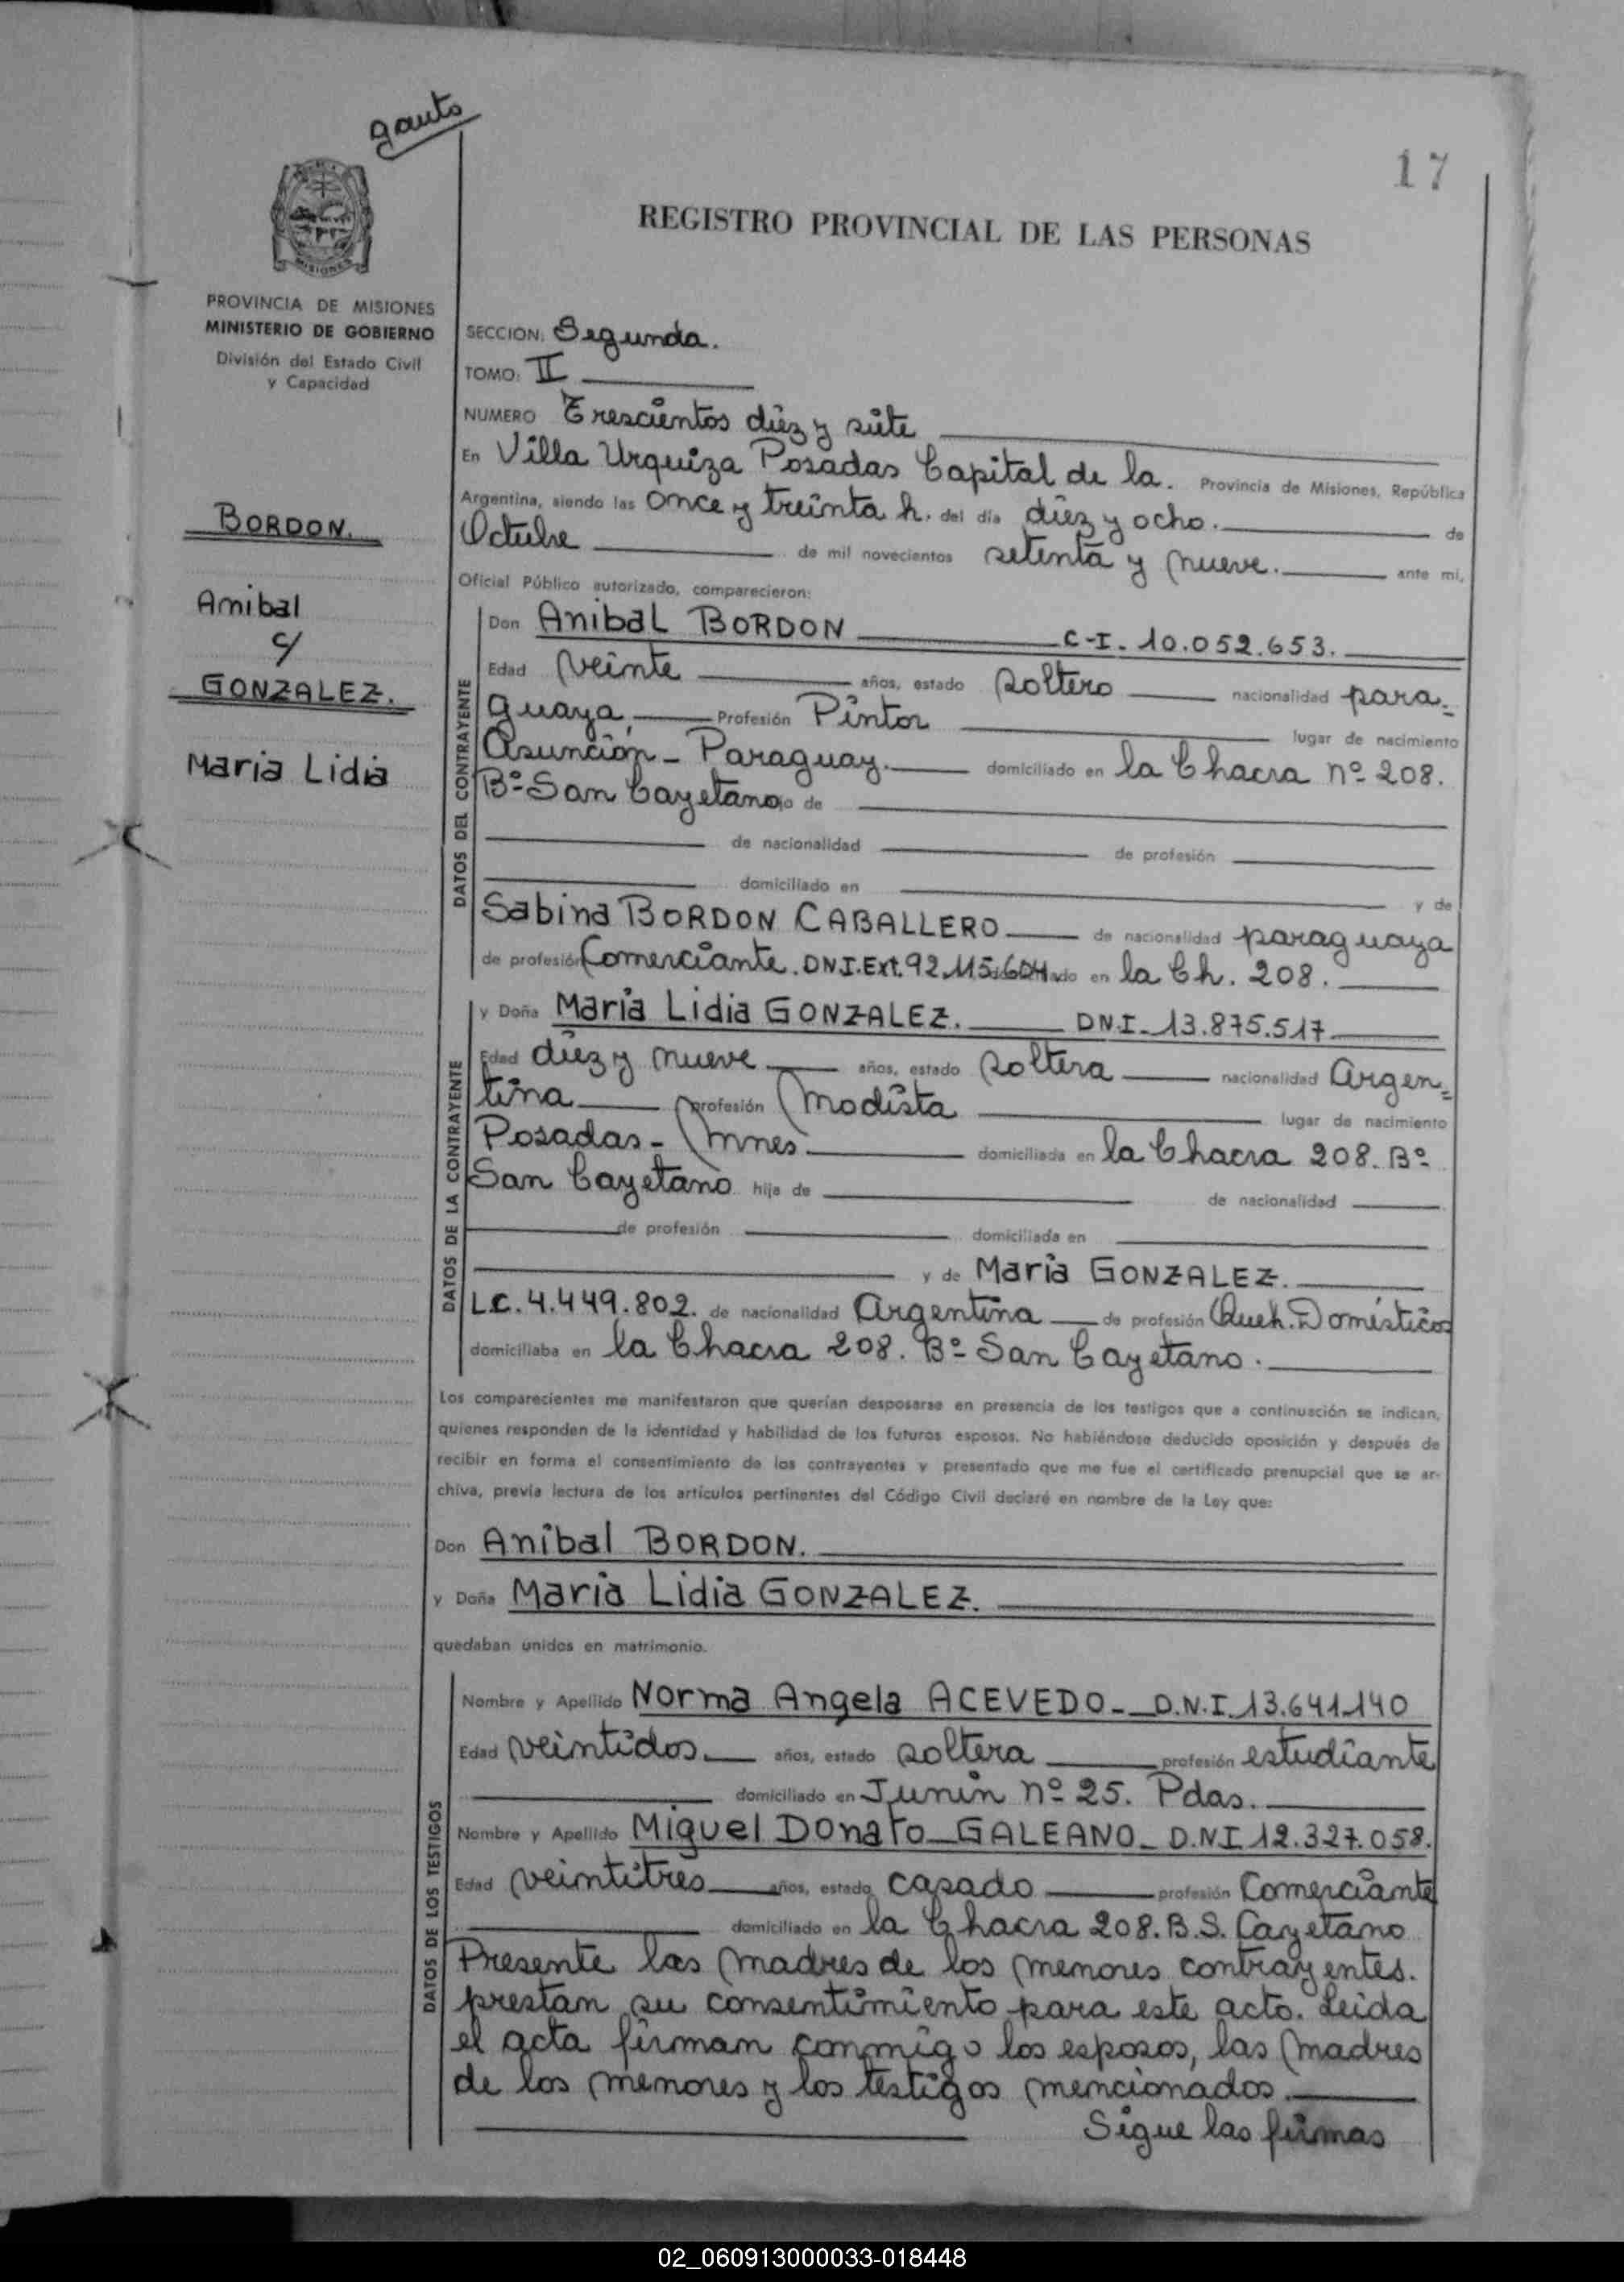 gauto
17
MISIONES
REGISTRO PROVINCIAL DE LAS PERSONAS
PROVINCIA DE MISIONES
MINISTERIO DE GOBIERNO
División del Estado Civil
y Capacidad
BORDON.
Anibal
c/
GONZALEZ.
Maria Lidia
SECCION: Segunda.
TOMO: II
NUMERO Trescientos diez y siete
En Villa Urquiza Posadas Capital de la. Provincia de Misiones, República
Argentina, siendo las Once y treinta h. del día diez y ocho. de
Octubre de mil novecientos setenta y nueve. ante mi,
Oficial Público autorizado, comparecieron:
DATOS DEL CONTRAYENTE
Don Anibal BORDON C-I. 10.052.653.
Edad veinte años, estado soltero nacionalidad para-
guaya, Profesión Pintor lugar de nacimiento
Asunción - Paraguay. domiciliado en la Chacra nº 208.
Bº San Cayetano jo de
de nacionalidad de profesión
domiciliado en y de
Sabina BORDON CABALLERO de nacionalidad paraguaya
de profesión Comerciante. DNI.Ext. 92.115.604 ado en la Ch. 208.
DATOS DE LA CONTRAYENTE
y Doña Maria Lidia GONZALEZ. DN.I. 13.875.517
Edad diez y nueve años, estado soltera nacionalidad Argen=
tina profesión Modista lugar de nacimiento
Posadas - Mnes domiciliada en la Chacra 208. Bº
San Cayetano hija de de nacionalidad
de profesión domiciliada en
y de Maria GONZALEZ.
L.C. 4.449.802. de nacionalidad Argentina de profesión Queh. Domésticos
domiciliaba en la Chacra 208. Bº San Cayetano.
Los comparecientes me manifestaron que querían desposarse en presencia de los testigos que a continuación se indican,
quienes responden de la identidad y habilidad de los futuros esposos. No habiéndose deducido oposición y después de
recibir en forma el consentimiento de los contrayentes y presentado que me fue el certificado prenupcial que se ar-
chiva, previa lectura de los artículos pertinentes del Código Civil declaré en nombre de la Ley que:
Don Anibal BORDON.
y Doña Maria Lidia GONZALEZ.
quedaban unidos en matrimonio.
DATOS DE LOS TESTIGOS
Nombre y Apellido Norma Angela ACEVEDO - D.N.I. 13.641.140
Edad veintidos. años, estado soltera profesión estudiante
domiciliado en Junin nº 25. Pdas.
Nombre y Apellido Miguel Donato GALEANO - D.N.I 12.327.058.
Edad veintitres años, estado casado profesión Comerciante
domiciliado en la Chacra 208. B. S. Cayetano
Presente las madres de los menores contrayentes.
prestan su consentimiento para este acto. Leida
el acta firman conmigo los esposos, las madres
de los menores y los testigos mencionados.
Sigue las firmas
02_060913000033-018448